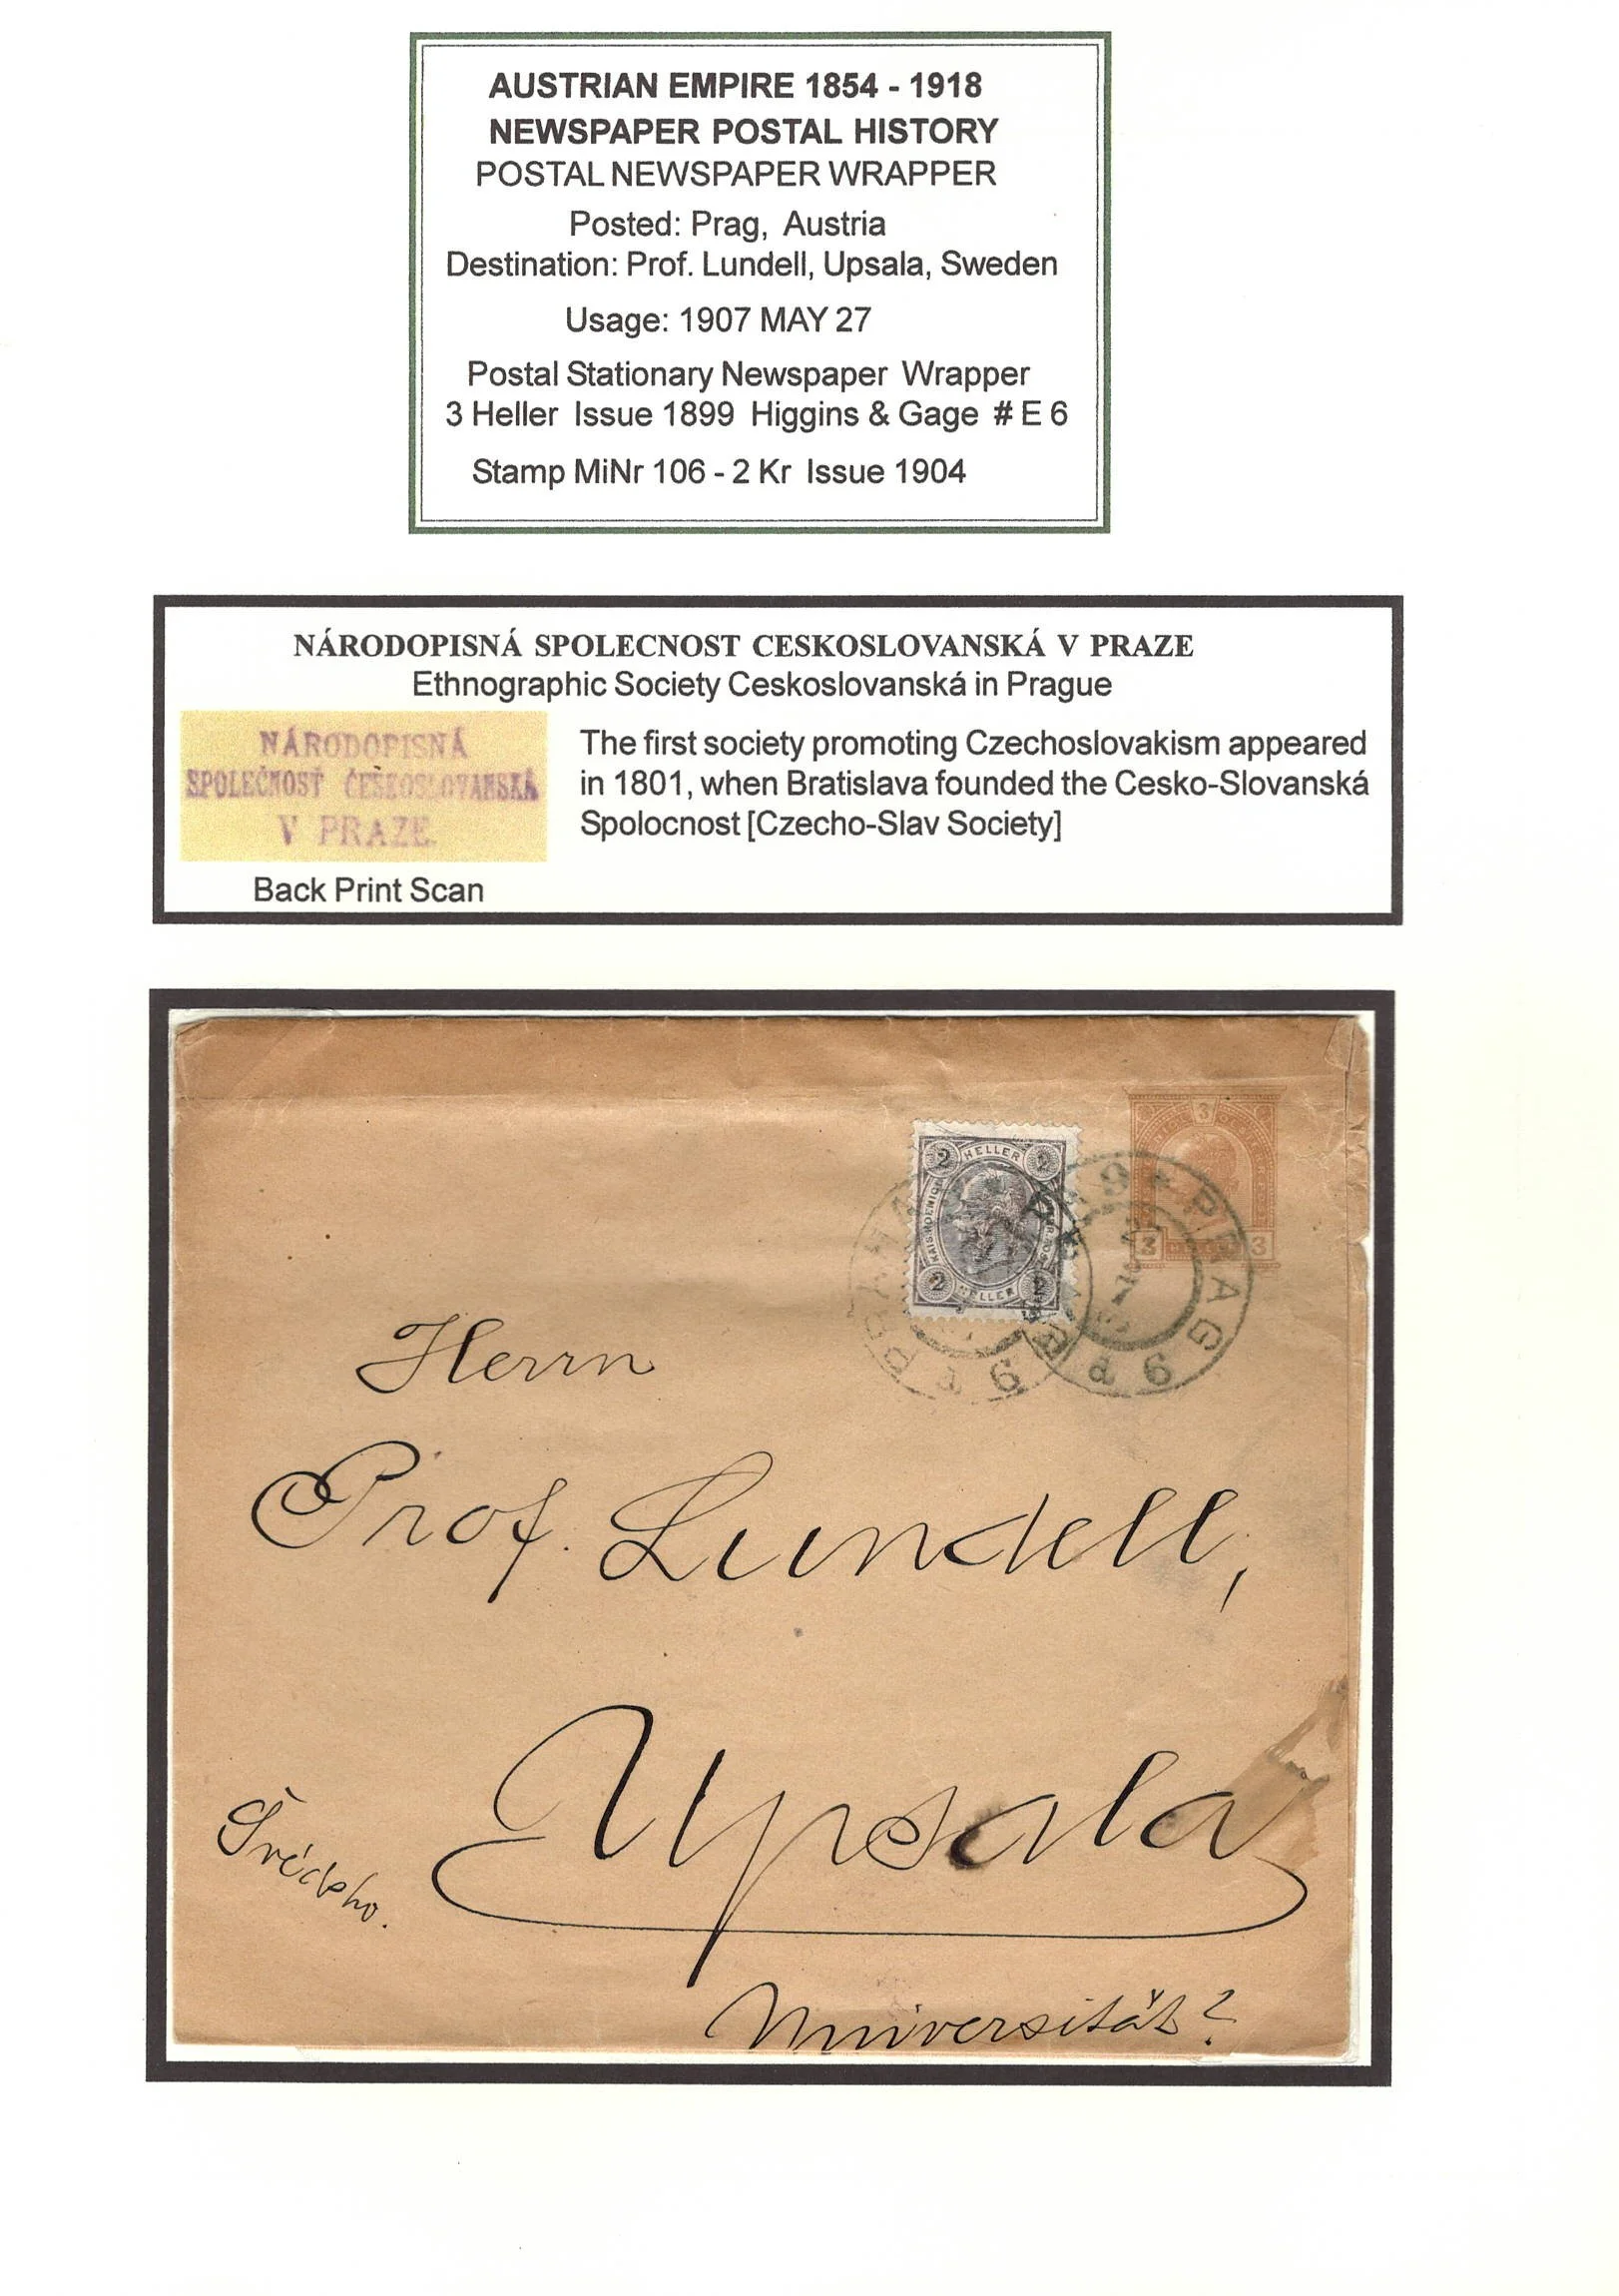 AUSTRIAN EMPIRE 1854 - 1918
NEWSPAPER POSTAL HISTORY
POSTAL NEWSPAPER WRAPPER
Posted: Prag, Austria
Destination: Prof. Lundell, Upsala, Sweden
Usage: 1907 MAY 27
Postal Stationary Newspaper Wrapper
3 Heller Issue 1899 Higgins & Gage # E 6
Stamp MiNr 106 - 2 Kr Issue 1904
NÁRODOPISNÁ SPOLECNOST CESKOSLOVANSKÁ V PRAZE
Ethnographic Society Ceskoslovanská in Prague
NÁRODOPISNÁ
SPOLEČNOSŤ ČESKOSLOVANSKÁ
V PRAZE.
The first society promoting Czechoslovakism appeared
in 1801, when Bratislava founded the Cesko-Slovanská
Spolocnost [Czecho-Slav Society]
Back Print Scan
3
2 HELLER 2
2 HELLER 2
3 3
PRAG
PRAHA
Herrn
Prof. Lundell,
Upsala
Universität?